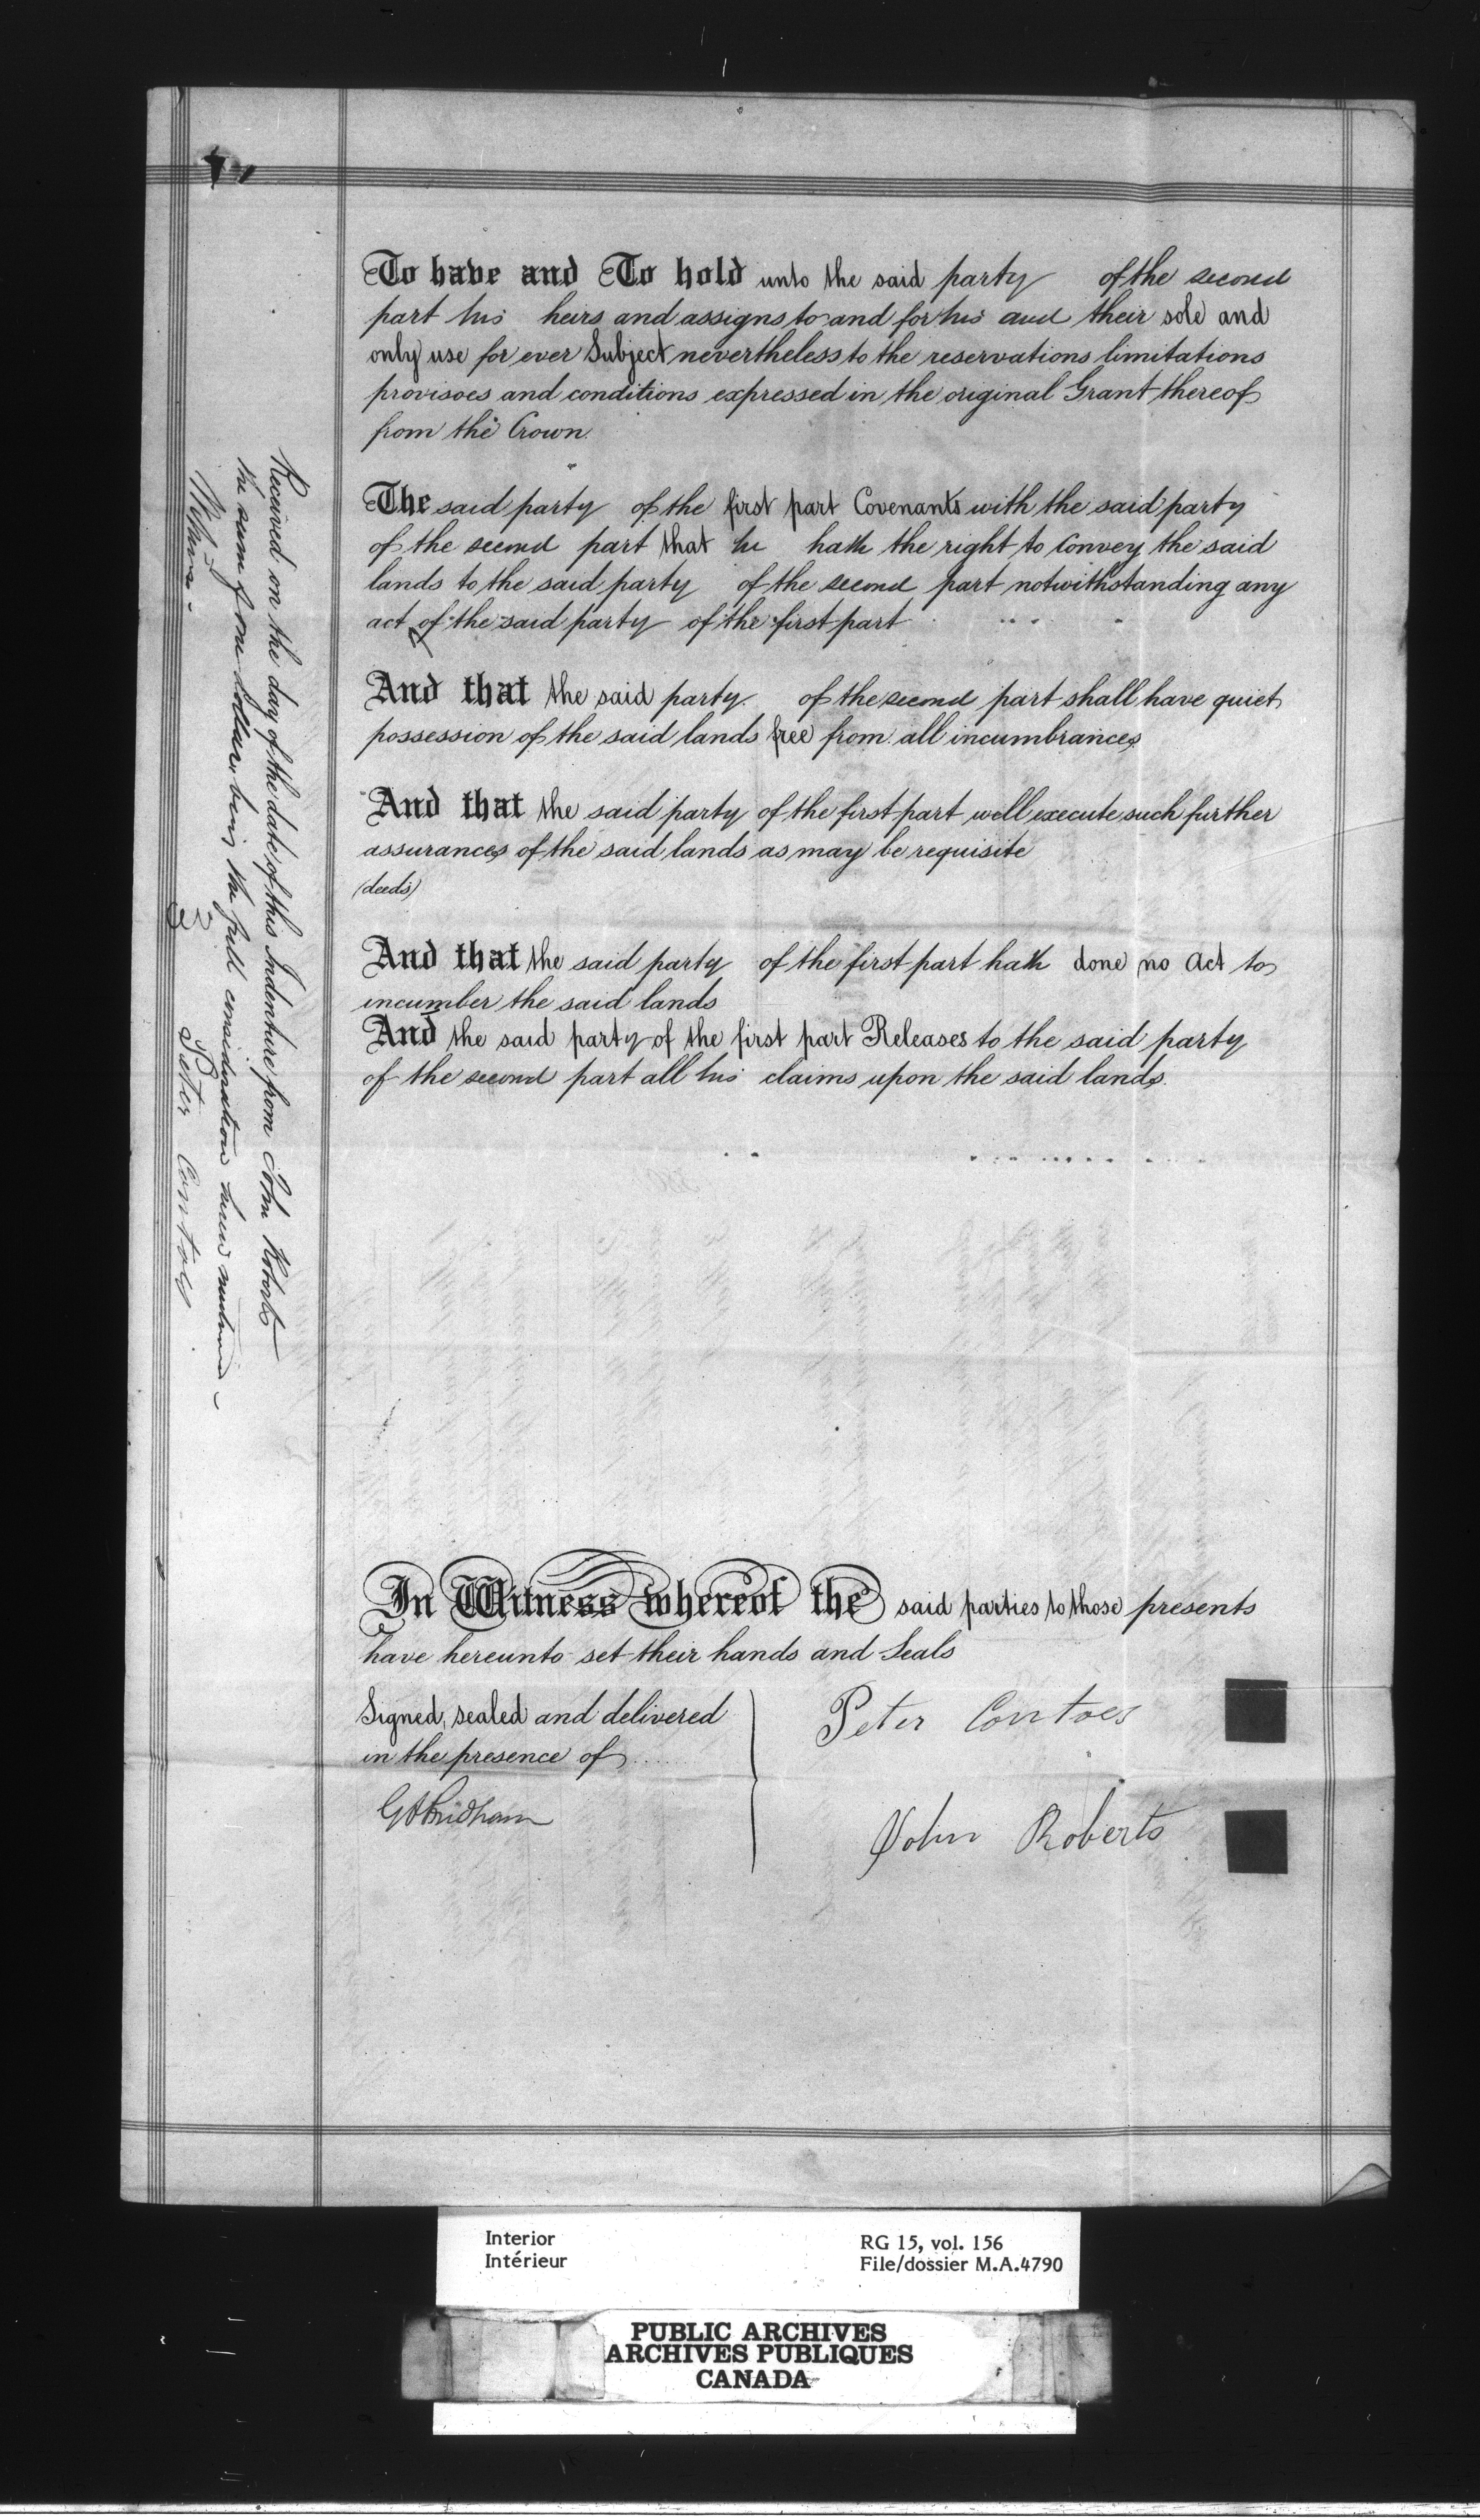 To have and To hold unto the said party of the second
part his heirs and assigns to and for his and their sole and
only use for ever Subject nevertheless to the reservations limitations
provisoes and conditions expressed in the original Grant thereof
from the Crown.
The said party of the first part Covenants with the said party
of the second part that he hath the right to convey the said
lands to the said party of the second part notwithstanding any
act of the said party of the first part
And that the said party of the second part shall have quiet
possession of the said lands free from all incumbrances
And that the said party of the first part will execute such further
assurances of the said lands as may be requisite
(deeds)
And that the said party of the first part hath done no act to
incumber the said lands
And the said party of the first part Releases to the said party
of the second part all his claims upon the said lands.
In Witness whereof the said parties to those presents
have hereunto set their hands and Seals
Signed, sealed and delivered
in the presence of
Peter Contoes
John Roberts
Received on the day of the date of this Indenture from John Roberts
the sum of one dollar, being the full consideration herein mentioned -
Witness -
Peter
Interior
Intérieur
RG 15, vol. 156
File/dossier M.A.4790
PUBLIC ARCHIVES
ARCHIVES PUBLIQUES
CANADA